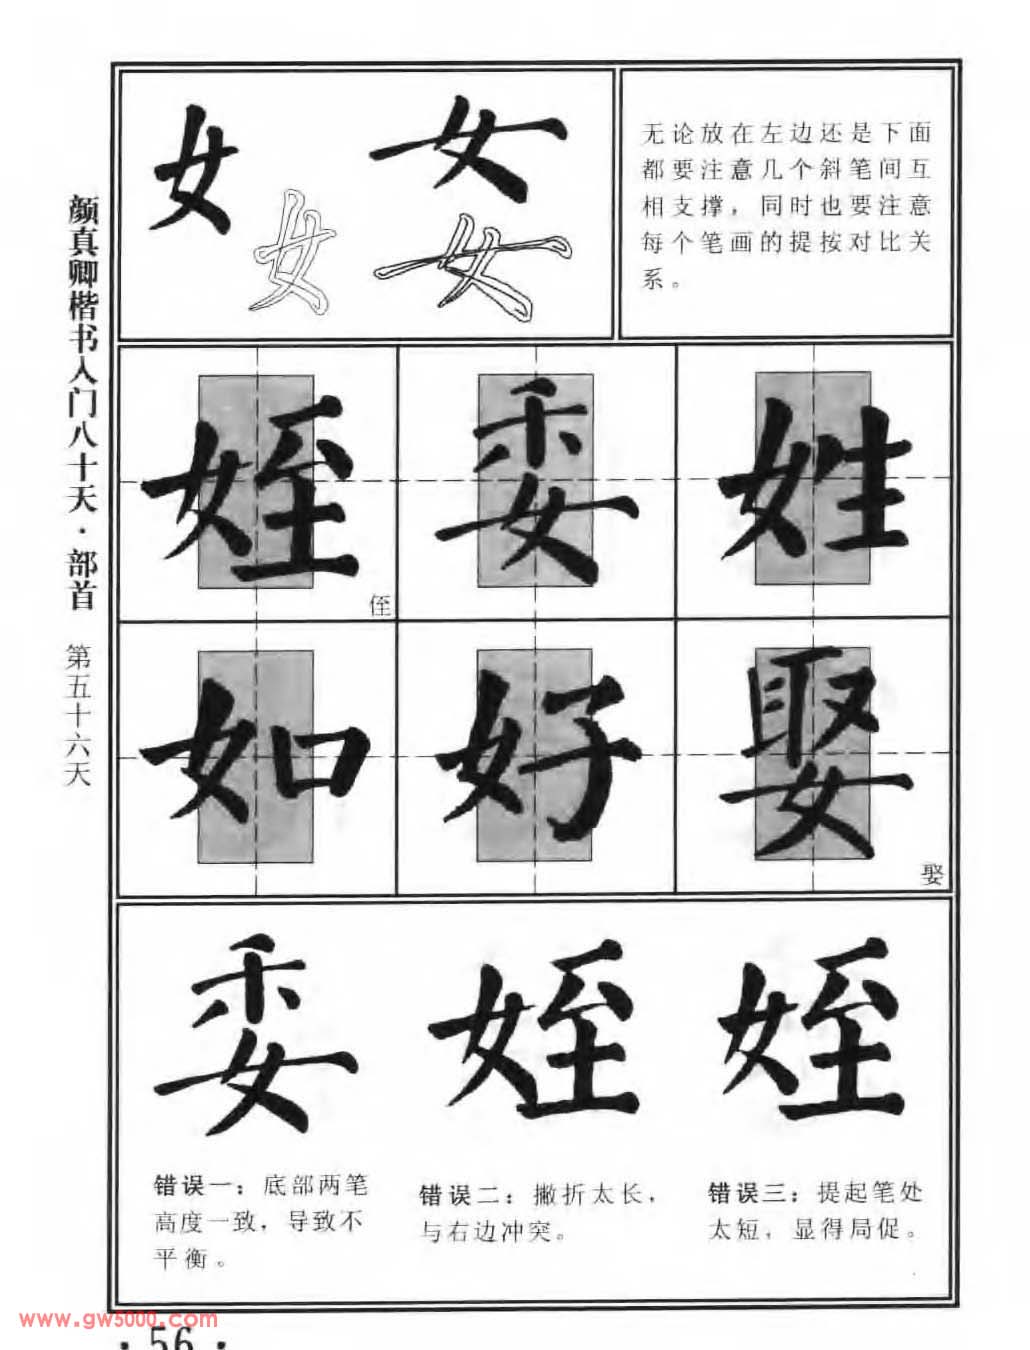 颜真卿楷书入门八十天·部首 第五十六天
女 女
女 女
无论放在左边还是下面
都要注意几个斜笔间互
相支撑，同时也要注意
每个笔画的提按对比关
系。
姪 委 姓
侄
如 好 娶
娶
委 姪 姪
错误一：底部两笔
高度一致，导致不
平衡。
错误二：撇折太长，
与右边冲突。
错误三：提起笔处
太短，显得局促。
www.gw5000.com
·56·